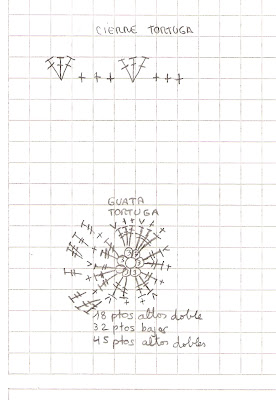 CIERRE TORTUGA
GUATA
TORTUGA
18 ptos altos doble
32 ptos bajos
45 ptos altos dobles